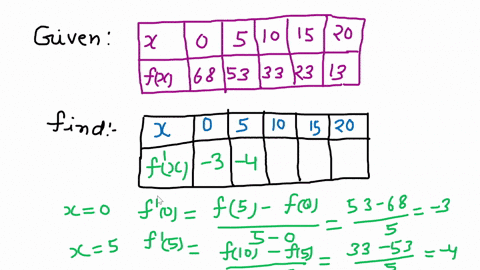 Given: x 0 5 10 15 20
f(x) 68 53 33 23 13
find:- x 0 5 10 15 20
f'(x) -3 -4
x=0 f'(0) = f(5) - f(0) / 5-0 = 53-68 / 5 = -3
x=5 f'(5) = f(10) - f(5) / = 33-53 / 5 = -4